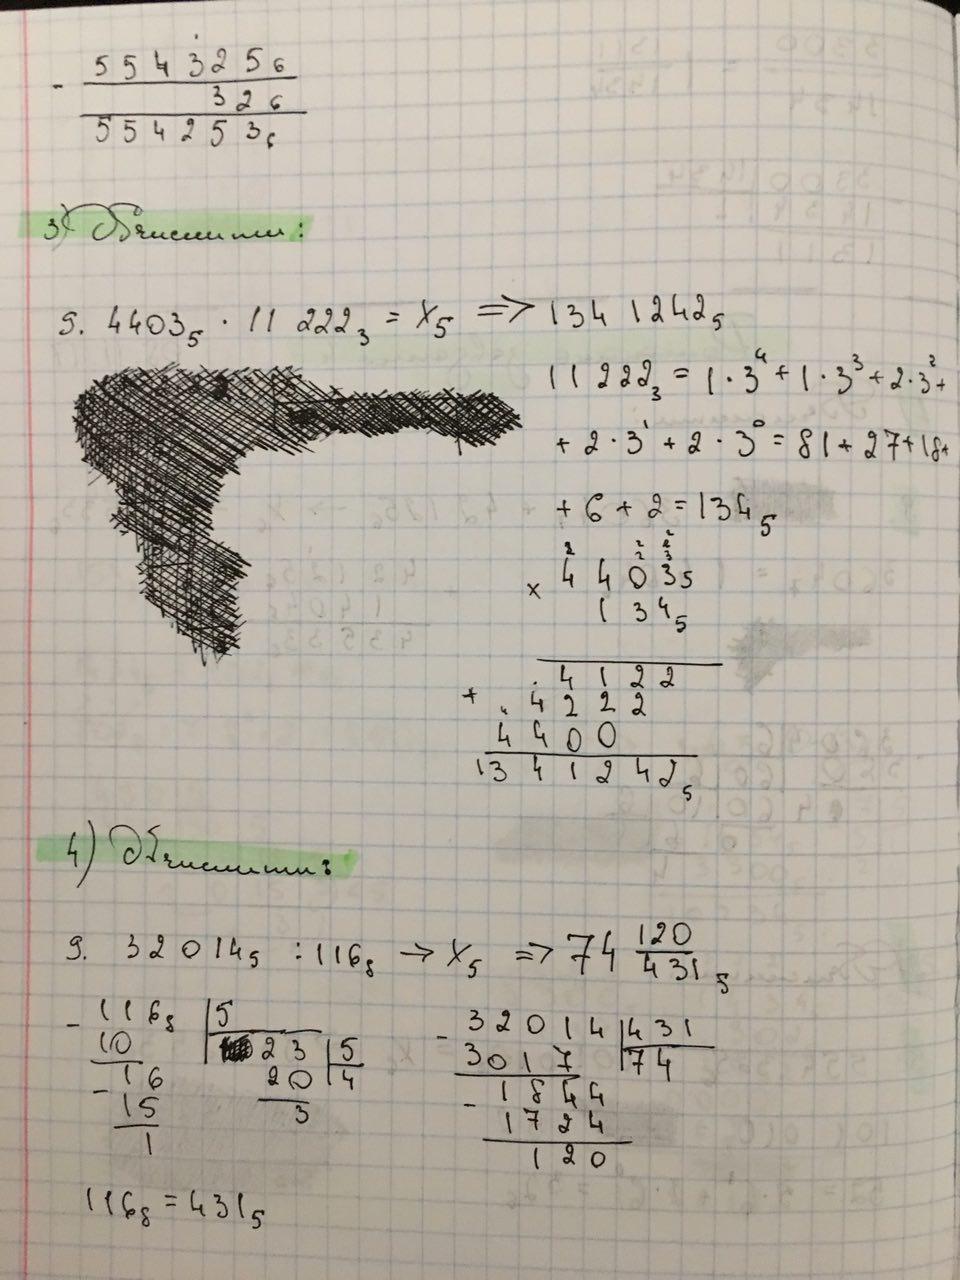 - 5543256
326
554253₆
3) Обчислити:
9. 4403₅ · 11 222₃ = X₅ => 134 1242₅
11 222₃ = 1·3⁴ + 1·3³ + 2·3² +
+ 2·3¹ + 2·3⁰ = 81 + 27 + 18 +
+ 6 + 2 = 134₅
2 2 2
2 3
× 4403₅
134₅
4122
+ 4222
4400
1341242₅
4) Обчислити:
9. 32014₅ : 116₈ → X₅ => 74 120/431₅
- 116₈ | 5
10 23 | 5
- 16 20 4
15 3
1
- 32014 | 431
3017 74
- 1844
1724
120
116₈ = 431₅